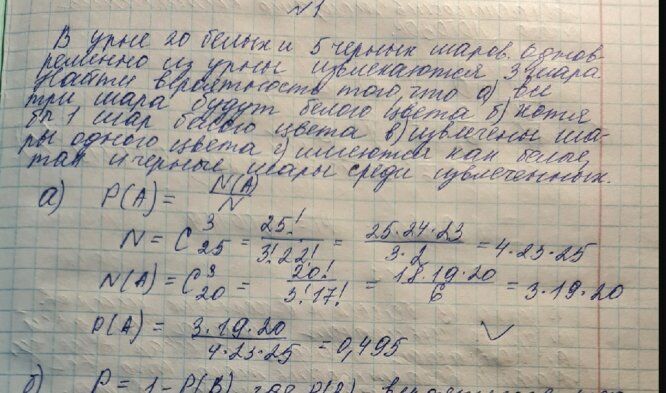 №1
В урне 20 белых и 5 черных шаров. Однов-
ременно из урны извлекаются 3 шара
Найти вероятность того, что а) все
три шара будут белого цвета б) хотя
бы 1 шар белого цвета в) извлечены ша-
ры одного цвета г) имеются как белые,
так и черные шары среди извлеченных.
а) P(A) = N(A)/N
N = C³₂₅ = 25!/3!22! = 25·24·23/3·2 = 4·23·25
N(A) = C³₂₀ = 20!/3!17! = 18·19·20/6 = 3·19·20
P(A) = 3·19·20/4·23·25 = 0,495
б) P = 1 - P(B), где P(B) -